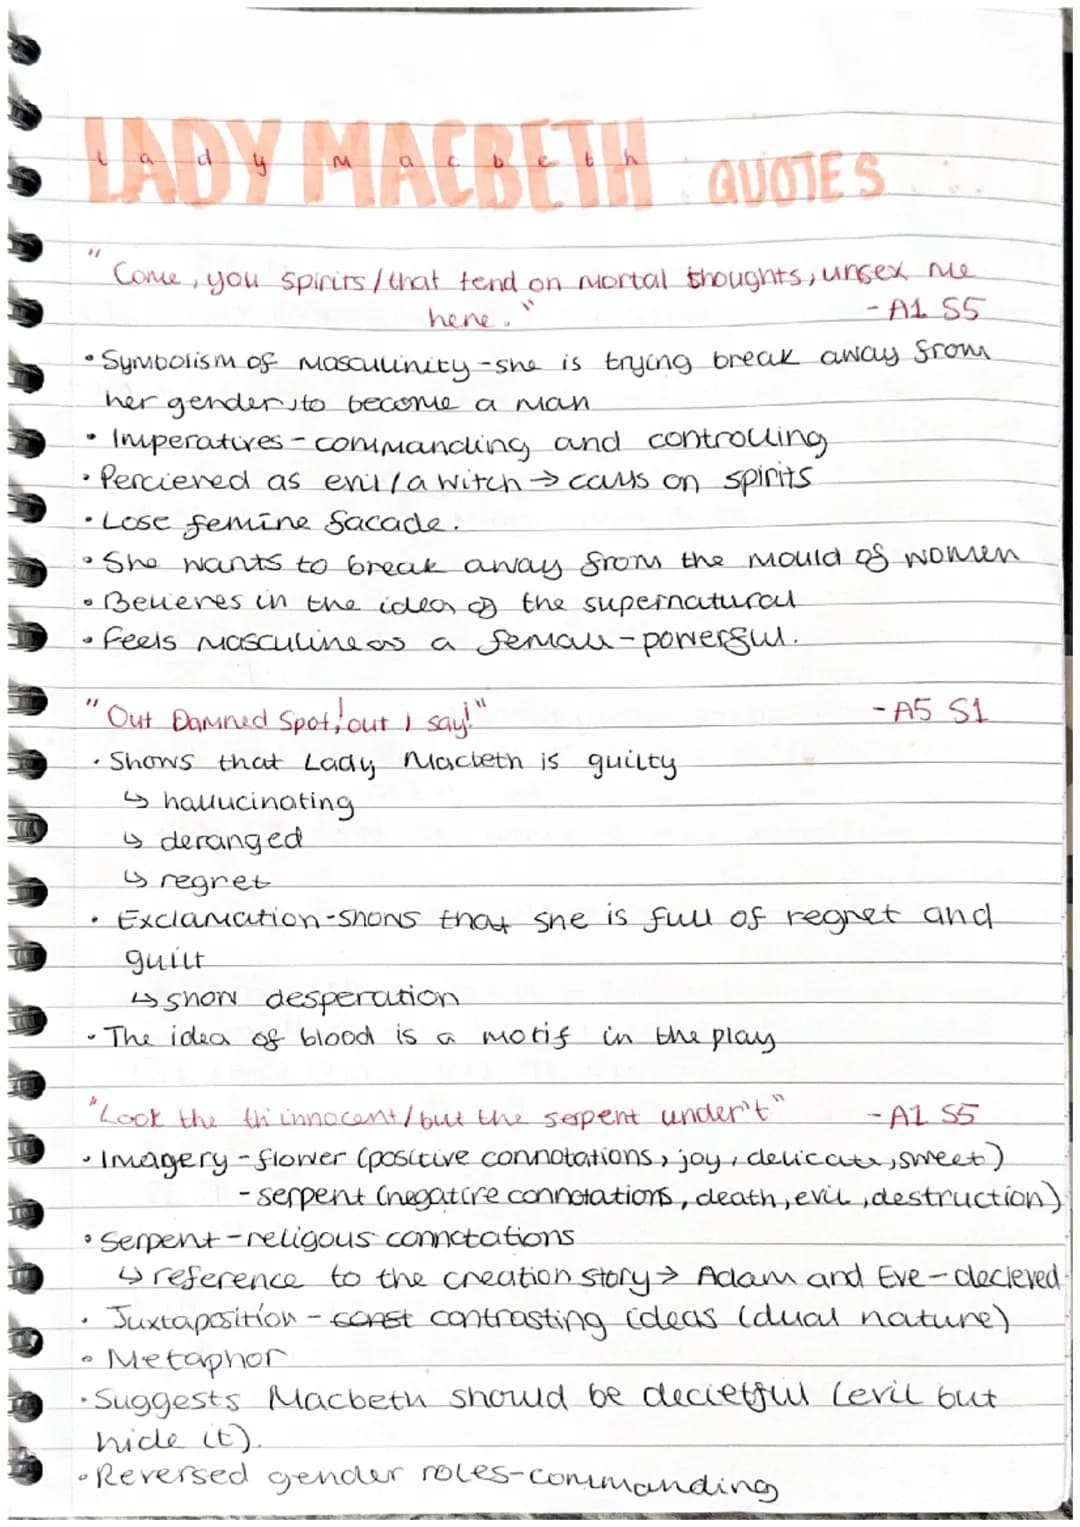 LADY MACBETH QUOTES
Lady Macbeth
"Come, you spirits / that tend on mortal thoughts, unsex me
here."
- A1 S5
• Symbolism of masculinity - she is trying break away from
her gender, to become a man
• Imperatives - commanding and controlling
• Percieved as evil / a witch → calls on spirits
• Lose femine facade.
• She wants to break away from the mould of women
• Believes in the idea of the supernatural
• Feels masculine as a female - powerful.
"Out Damned Spot, out I say!"
- A5 S1
• Shows that Lady Macbeth is guilty
↳ hallucinating
↳ deranged
↳ regret
• Exclamation - shows that she is full of regret and
guilt
↳ show desperation
• The idea of blood is a motif in the play
"Look the th innocent / but the serpent under't"
- A1 S5
• Imagery - flower (positive connotations, joy, delicate, sweet)
- serpent (negative connotations, death, evil, destruction)
• Serpent - religous connotations
↳ reference to the creation story → Adam and Eve - decieved
• Juxtaposition - const contrasting ideas (dual nature)
• Metaphor
• Suggests Macbeth should be decietful (evil but
hide it).
• Reversed gender roles - commanding